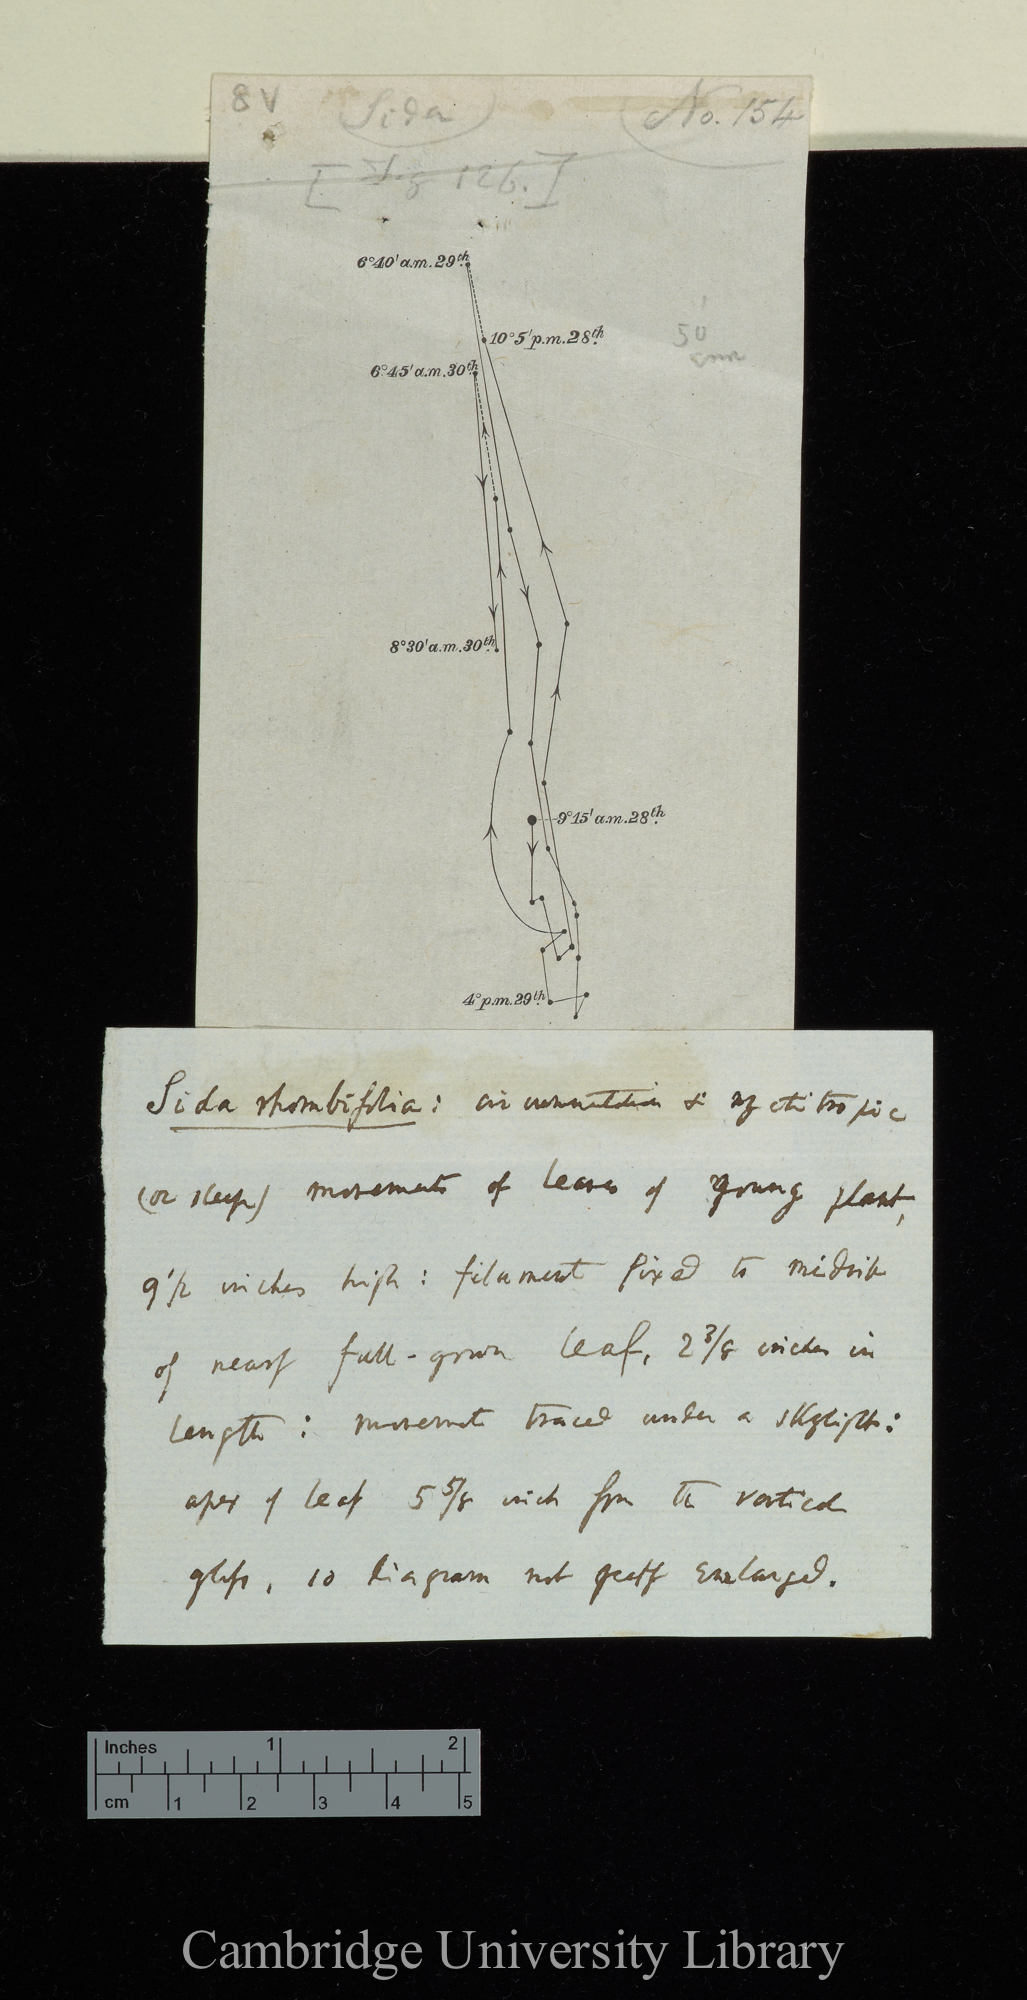 8 V
Sida
No. 154
[Fig 126.]
6°40' a.m. 29th.
10°5' p.m. 28th.
50
6°45' a.m. 30th
8°30' a.m. 30th.
9°15' a.m. 28th.
4° p.m. 29th.
Sida rhombifolia: circumnutation & nyctitropic
(or sleep) movements of leaves of young plant,
9 1/2 inches high: filament fixed to midrib
of nearly full-grown leaf, 2 3/8 inches in
length: movement traced under a skylight:
apex of leaf 5 5/8 inch from the vertical
glass, so diagram not greatly enlarged.
Inches 1 2
cm 1 2 3 4 5
Cambridge University Library